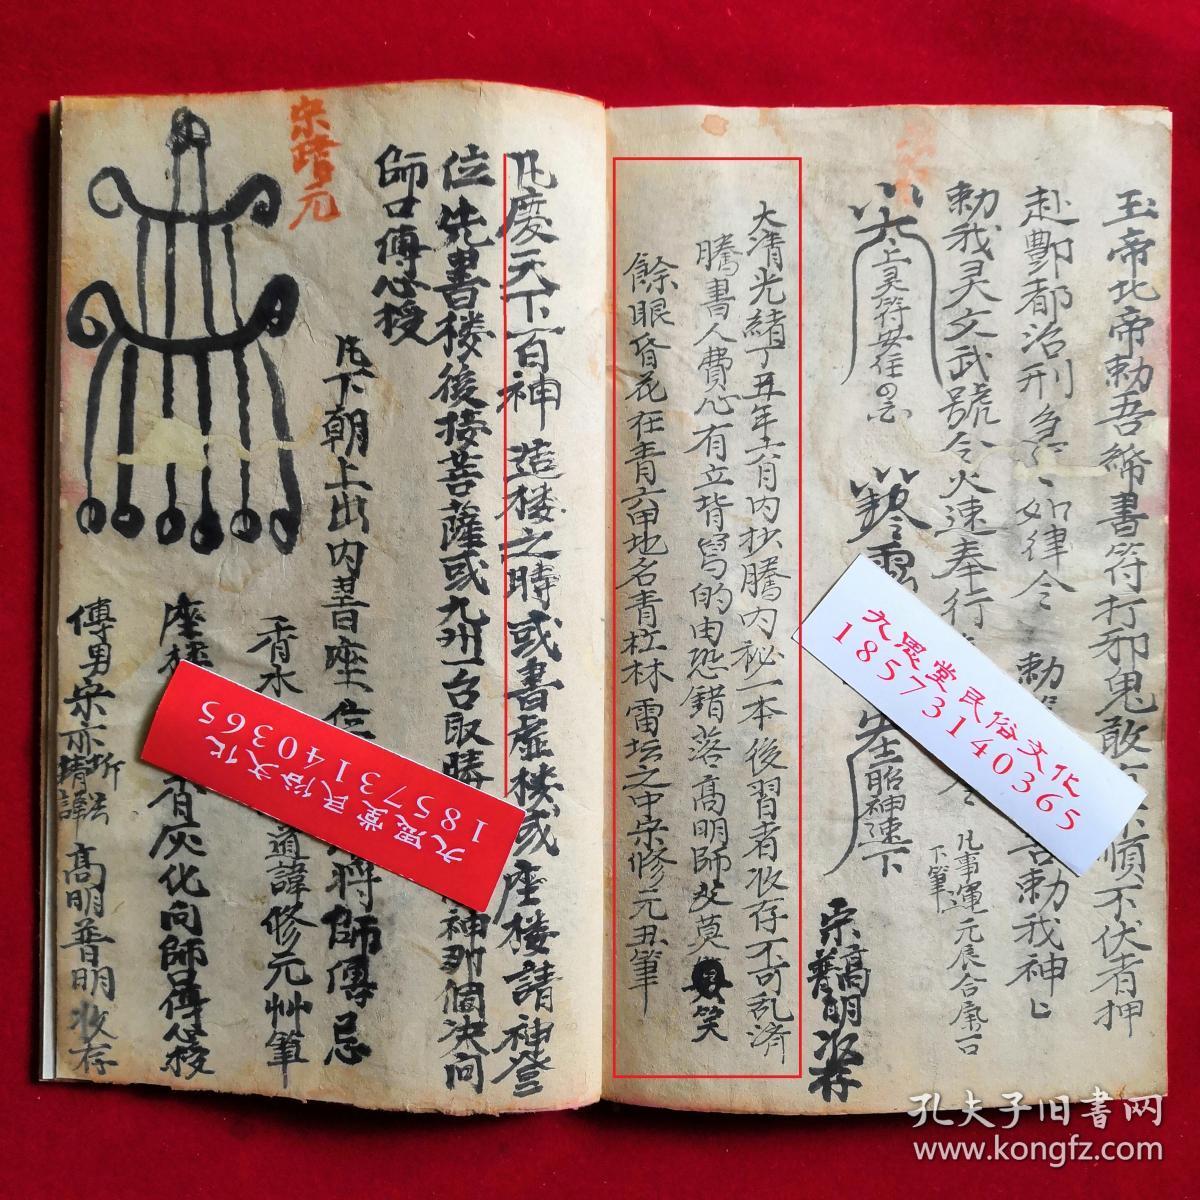 玉帝北帝勅吾篩書符打邪鬼敢
順不伏者押
赴酆都治刑急
如律令
勅
勅我灵文武號令火速奉行
吉勅我神
上灵符安任
凡事運元辰合
下筆
先
昭神速下
宗高明
普明
收存
大清光緒丁丑年六月内抄騰内祕一本後習者收存不可乱済
騰書人費心有立背寫的由恐錯落高明師父莫
笑
餘眼昏花在青六甲地名青杠林雷坛之中宋修元丑筆
九思堂民俗文化
18573140365
凡慶天下百神造楼之時或書虚楼或座楼請神登
位先書楼後接菩薩或九州一台取勝
神那個決问
師口傳心授
宋靖元
凡下朝上出内書座位
将師傳忌
香水
道諱修元艸筆
座楼
有灰化向師口傳心授
傳男宋
靖諱
法
高明普明收存
九思堂民俗文化
18573140365
孔夫子旧書网
www.kongfz.com